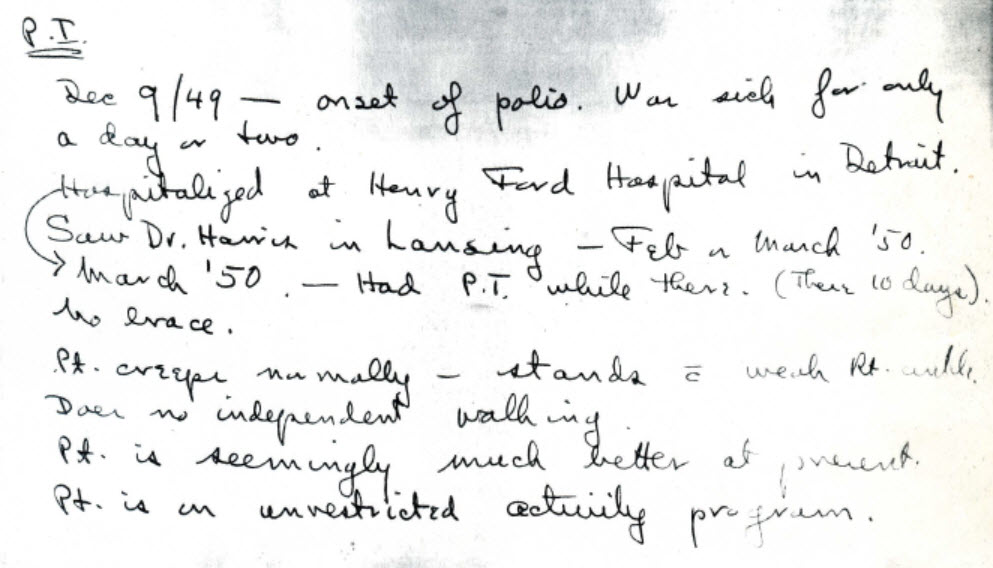 P.T.
Dec 9/49 — onset of polio. Was sick for only
a day or two.
Hospitalized at Henry Ford Hospital in Detroit.
Saw Dr. Harris in Lansing — Feb or March '50.
March '50. — Had P.T. while there. (There 10 days).
No brace.
Pt. creeps normally — stands c̄ weak Rt. ankle.
Does no independent walking
Pt. is seemingly much better at present.
Pt. is on unrestricted activity program.